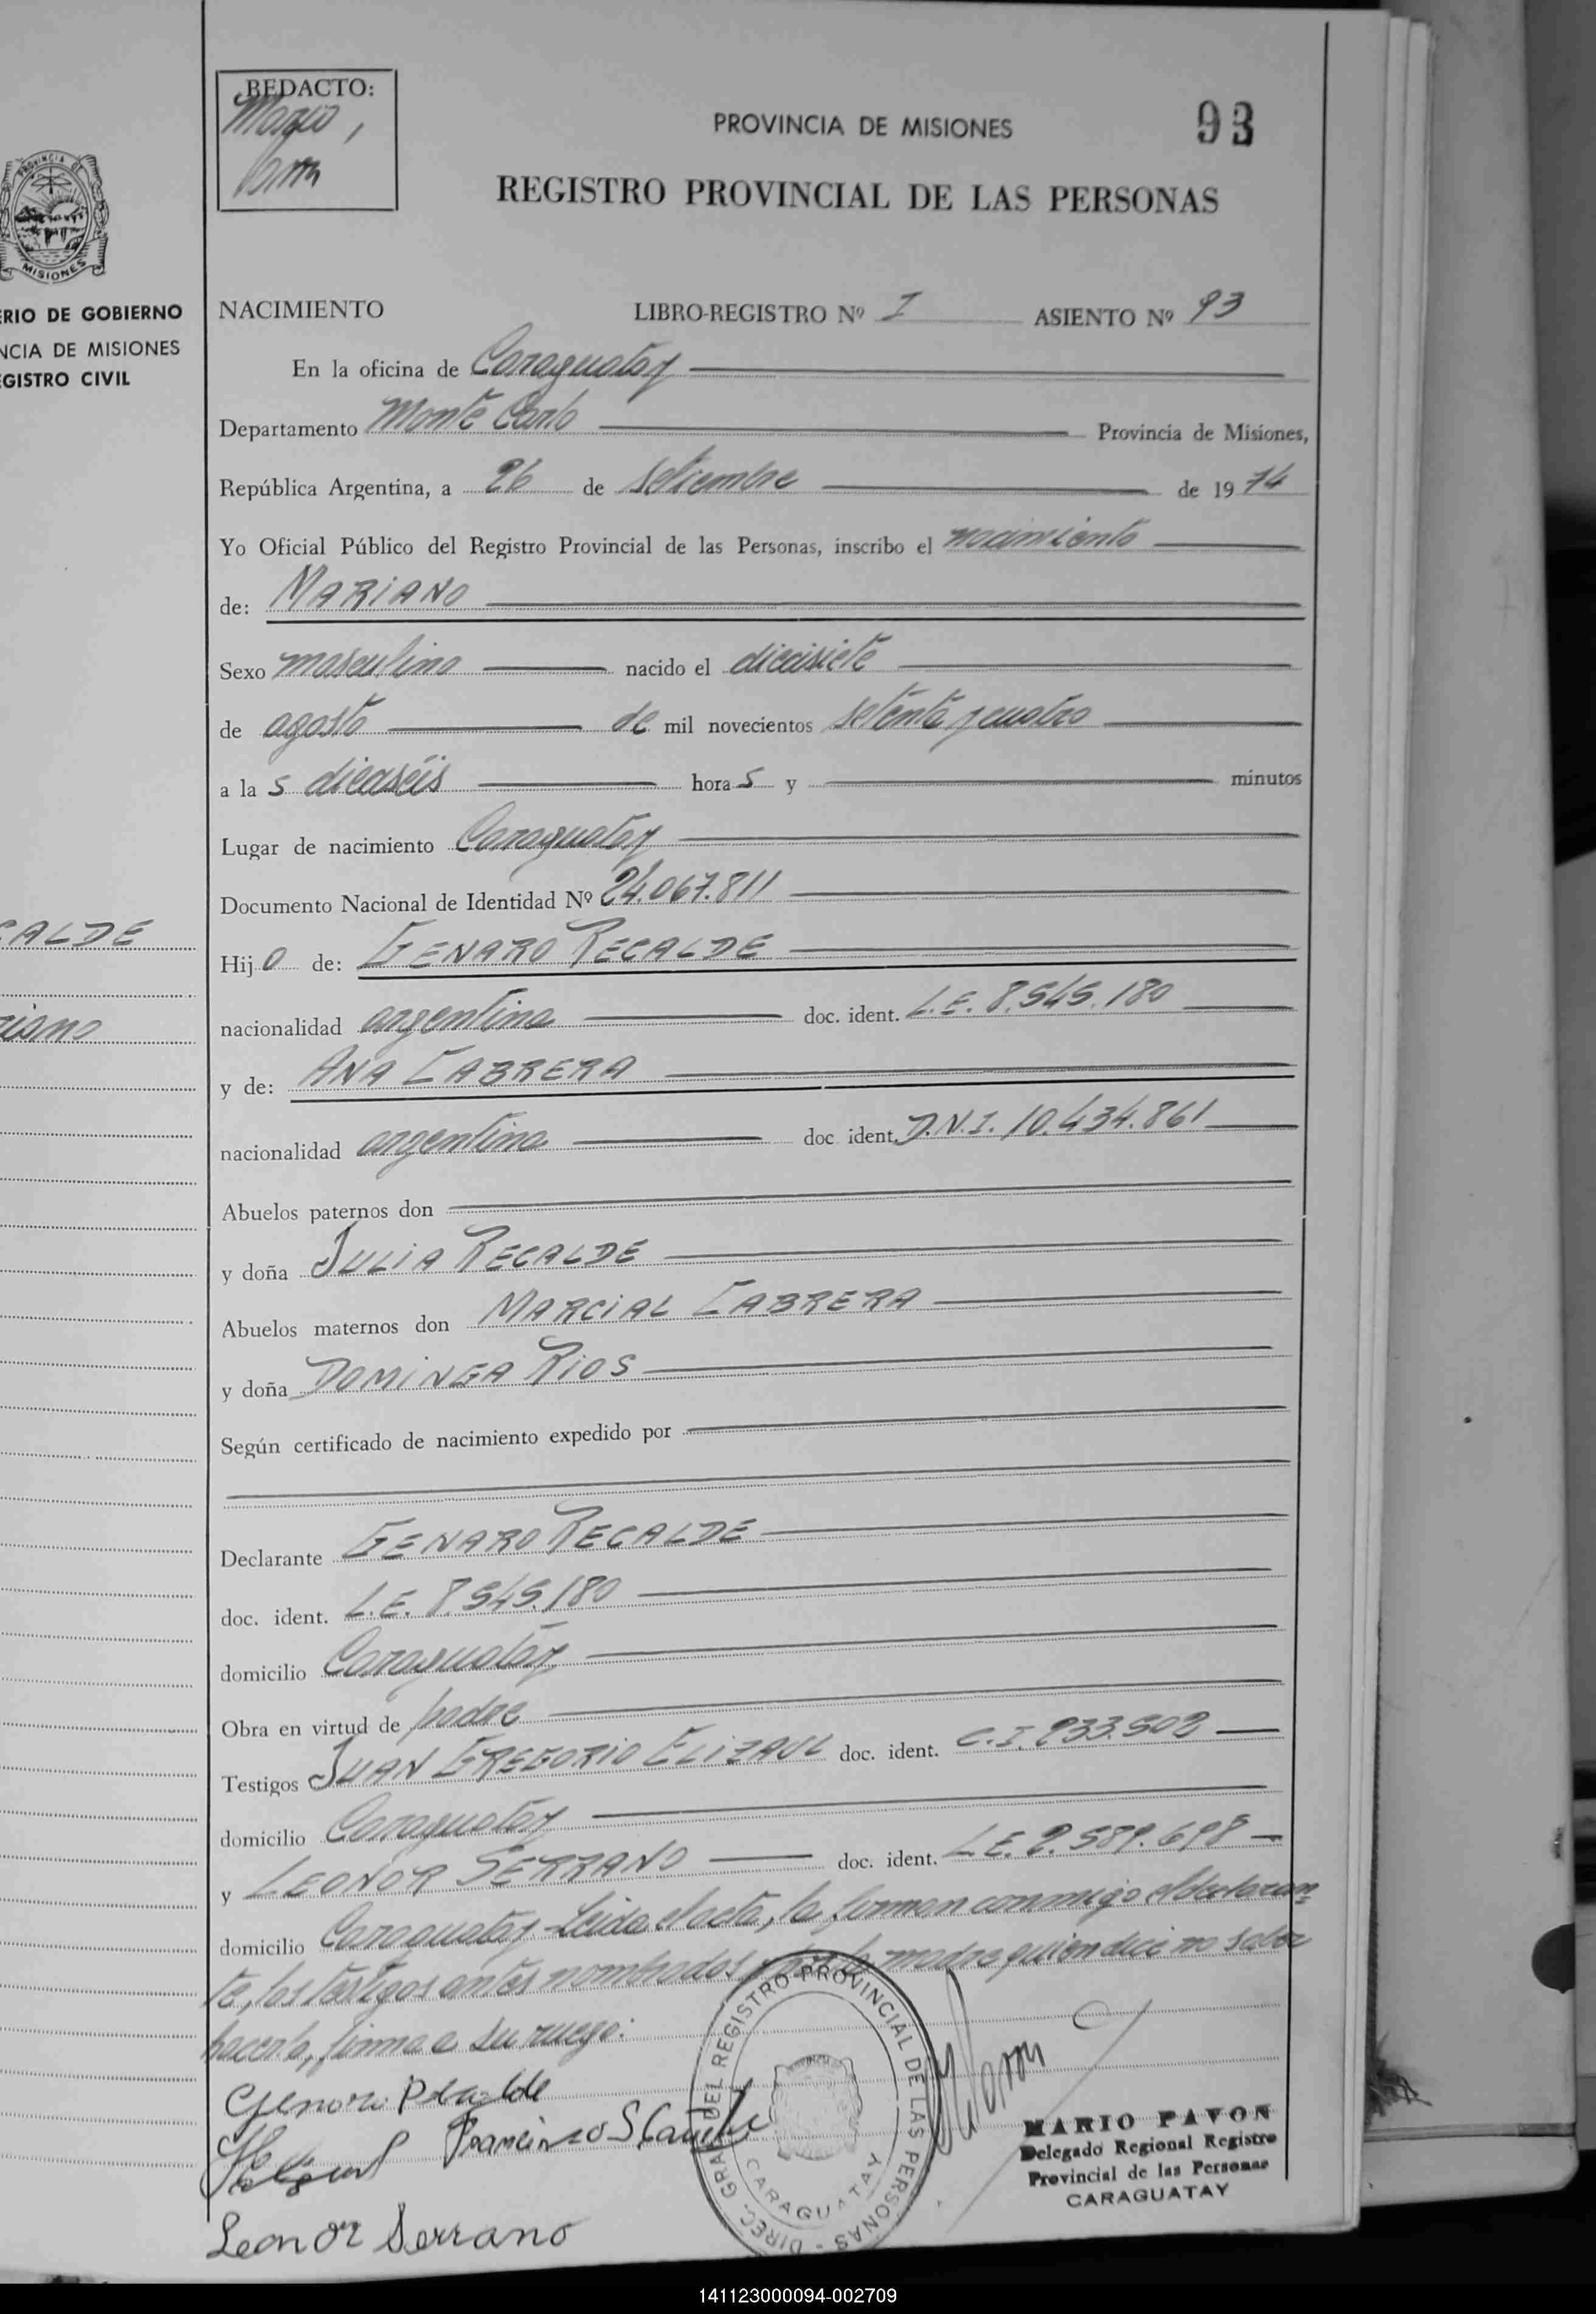 REDACTO:
Mario
PROVINCIA DE MISIONES
93
REGISTRO PROVINCIAL DE LAS PERSONAS
PROVINCIA DE
MISIONES
ERIO DE GOBIERNO
NCIA DE MISIONES
EGISTRO CIVIL
CALDE
riano
NACIMIENTO LIBRO-REGISTRO Nº I ASIENTO Nº 93
En la oficina de Caraguatay
Departamento Monte Carlo Provincia de Misiones,
República Argentina, a 26 de setiembre de 1974
Yo Oficial Público del Registro Provincial de las Personas, inscribo el nacimiento
de: MARIANO
Sexo masculino nacido el diecisiete
de agosto de mil novecientos setenta y cuatro
a las dieciséis horas y minutos
Lugar de nacimiento Caraguatay
Documento Nacional de Identidad Nº 24.067.811
Hijo de: GENARO RECALDE
nacionalidad argentina doc. ident. L.E. 8.545.180
y de: ANA CABRERA
nacionalidad argentina doc ident. D.N.I. 10.434.861
Abuelos paternos don
y doña JULIA RECALDE
Abuelos maternos don MARCIAL CABRERA
y doña DOMINGA RIOS
Según certificado de nacimiento expedido por
Declarante GENARO RECALDE
doc. ident. L.E. 8.545.180
domicilio Caraguatay
Obra en virtud de padre
Testigos JUAN GREGORIO ELIZAUL doc. ident. C.I. 233.502
domicilio Caraguatay
y LEONOR SERRANO doc. ident. L.E. 2.589.698
domicilio Caraguatay Leida el acta, la firman conmigo el declaran-
te, los testigos antes nombrados y por la madre quien dice no saber
hacerlo, firma a su ruego:
Genaro Recalde
Francisco S
Leonor Serrano
DIREC. GRAL DEL REGISTRO PROVINCIAL DE LAS PERSONAS -
CARAGUATAY
MARIO PAVON
Delegado Regional Registro
Provincial de las Personas
CARAGUATAY
141123000094-002709